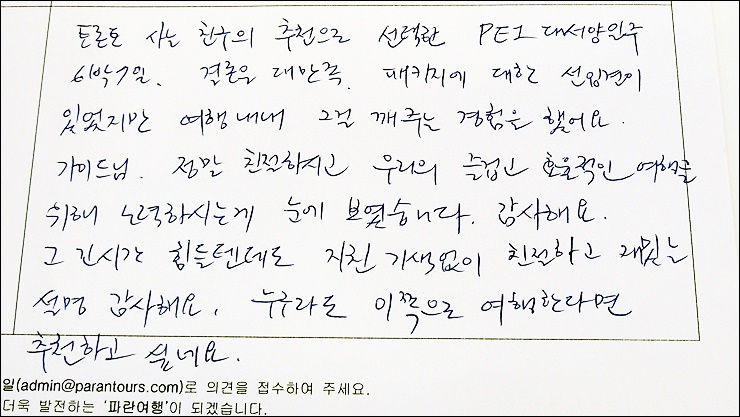 토론토 사는 친구의 추천으로 선택한 PEI 대서양일주
6박7일. 결론은 대만족. 패키지에 대한 선입견이
있었지만 여행내내 그걸 깨주는 경험을 했어요.
가이드님. 정말 친절하시고 우리의 즐겁고 효율적인 여행을
위해 노력하시는게 눈에 보였습니다. 감사해요.
그 긴시간 힘들텐데도 지친 기색없이 친절하고 재밌는
설명 감사해요. 누구라도 이쪽으로 여행한다면
추천하고 싶네요.
일(admin@parantours.com)로 의견을 접수하여 주세요.
더욱 발전하는 '파란여행'이 되겠습니다.